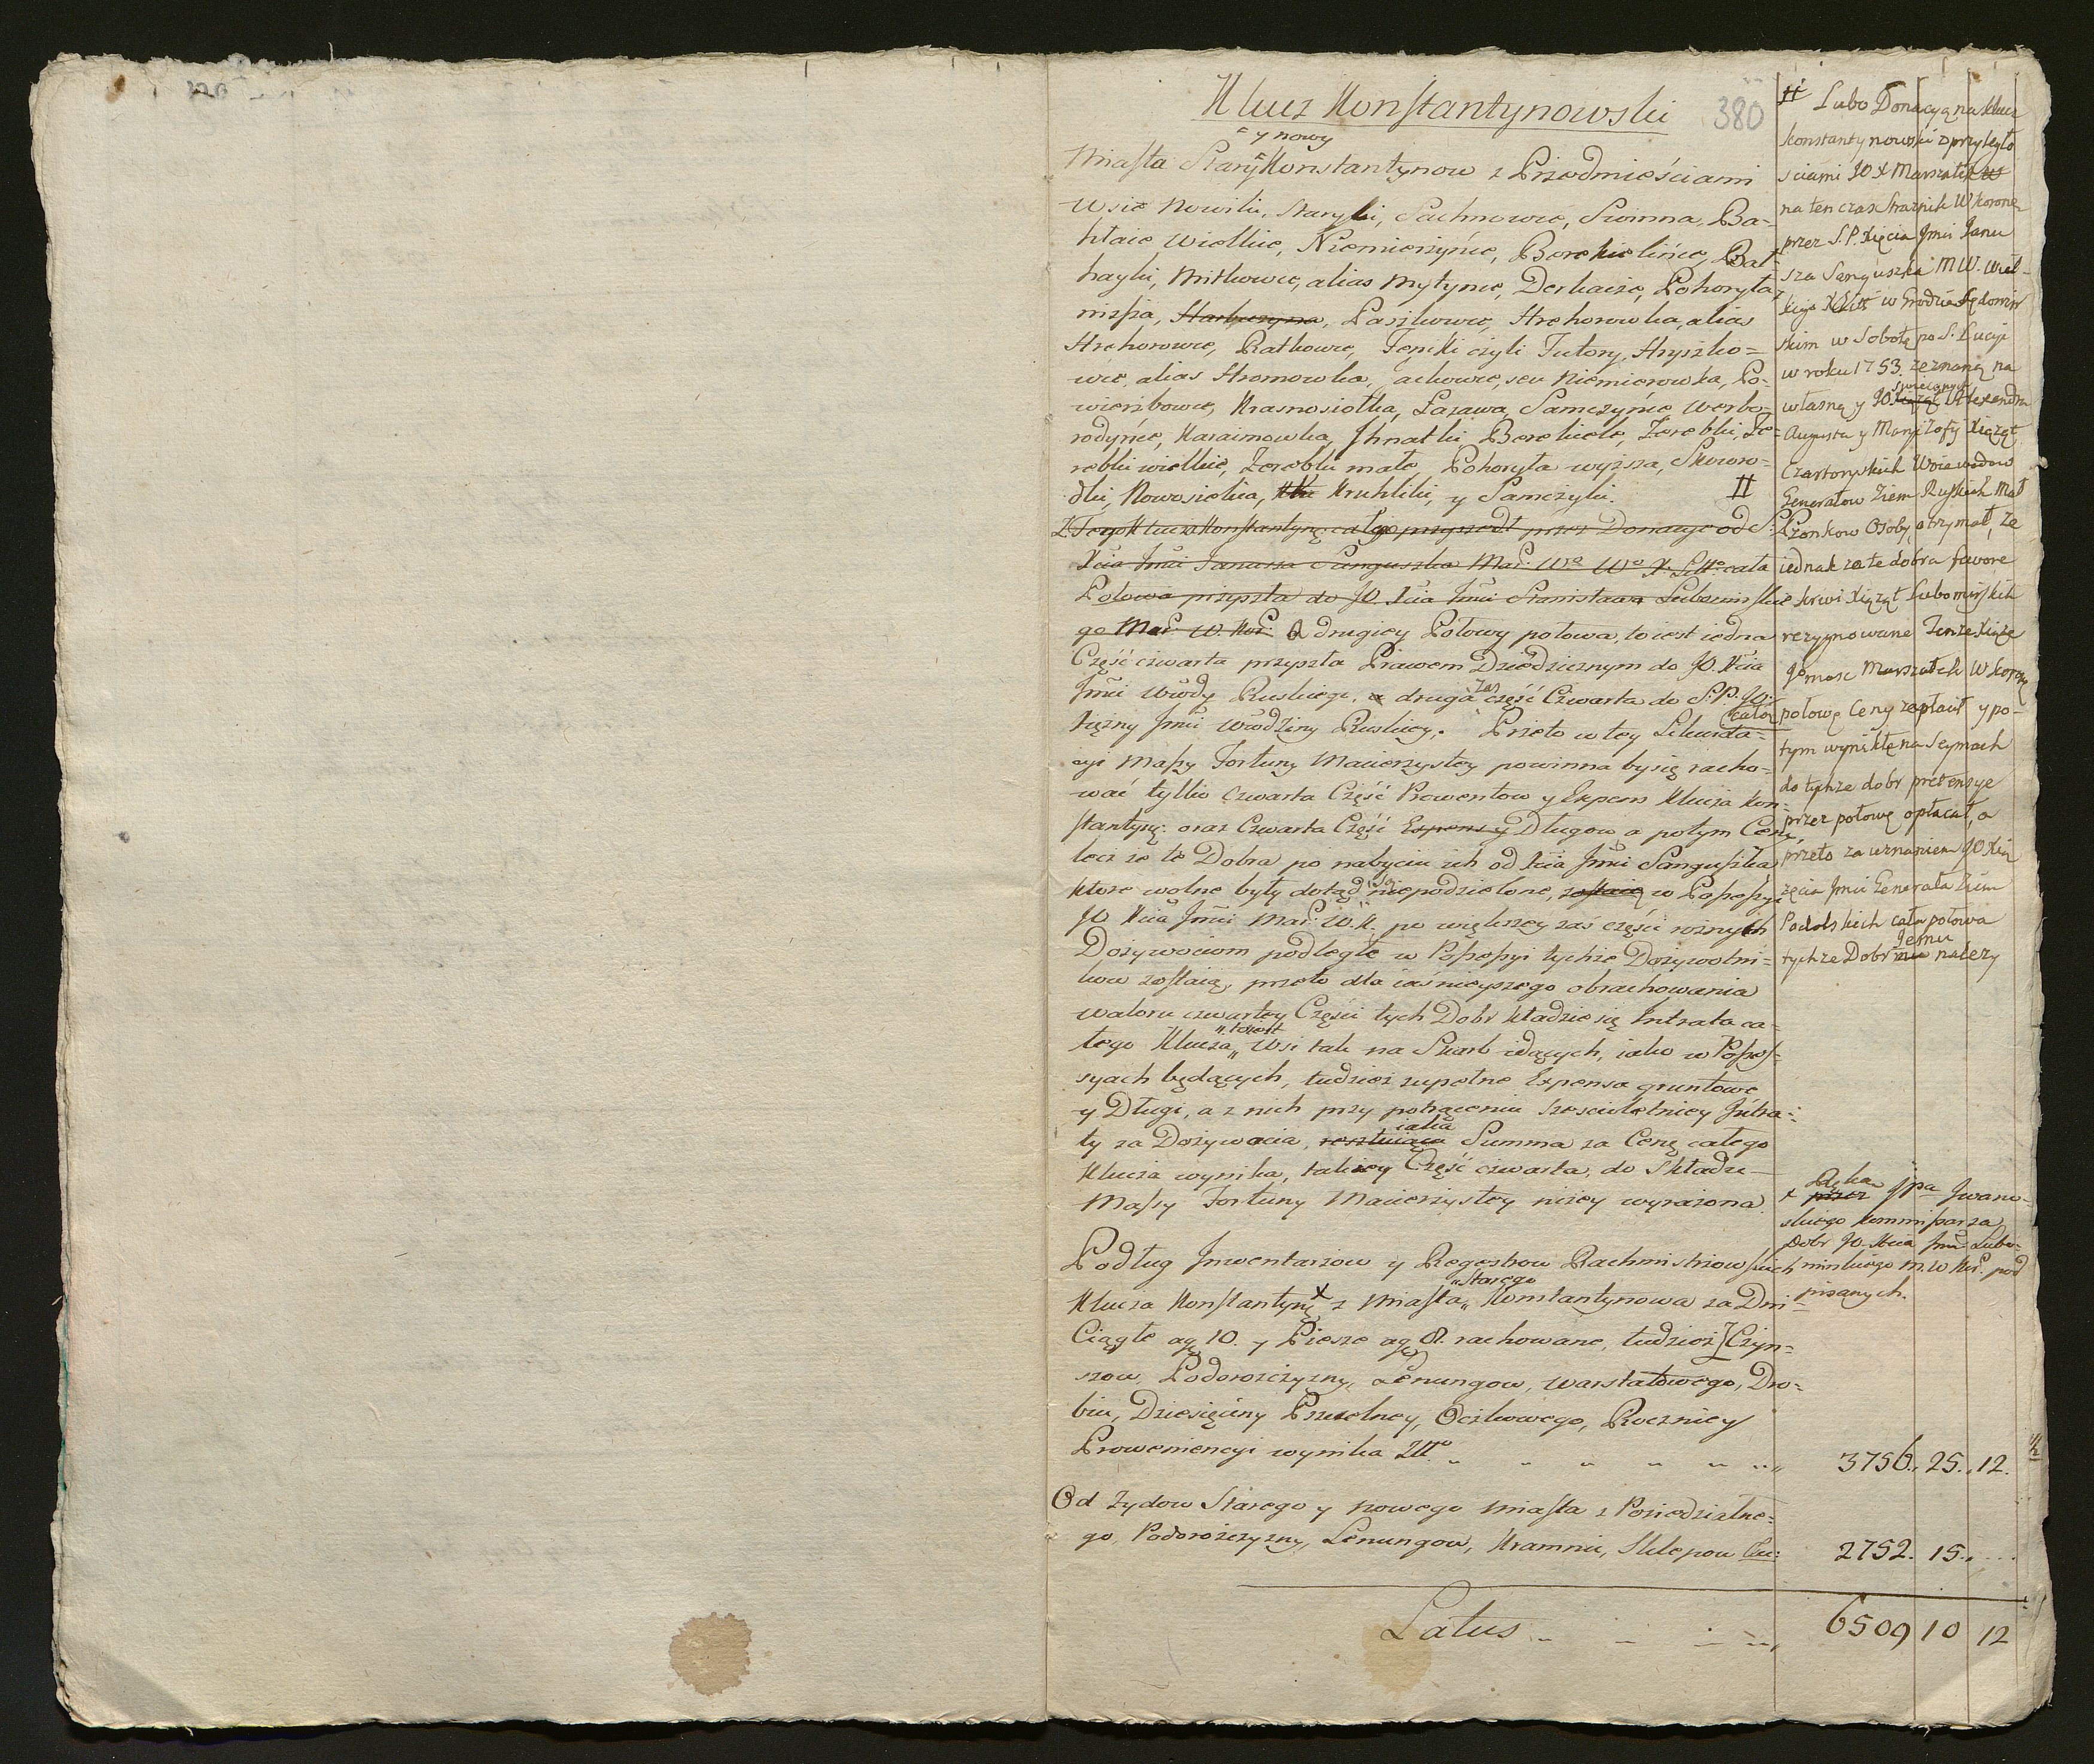 Klucz Konstantynowski
380
y nowy
Miasta Stary Konstantynow z Przedmieściami
Wsie Nowiki, Staryki, Pachnowce, Swinna, Ba-
hłaie Wielkie, Niemieżyńce, Borekielińce, Bał-
hayki, Mitkowce, alias Mytynce, Derkacze, Pohoryła
niższa, Harbuzyna, Paszkowce, Hrehorowka, alias
Hrehorowce, Ratkowce, Femki czyli Tutory, Hryszko-
wce, alias Hromowka, achowce, seu Niemierowka, Po-
wierzbowce, Krasnosiołka, Łazawa, Samczyńce, Werbo-
rodyńce, Karaimowka, Jhnatki, Borekiele, Zerebki, Ze-
rebki wielkie, Zerebki małe, Pohoryła wyższa, Skowro-
dki, Nowosielica, Kruhliki, y Samczyki. #
Z Tego Klucza Konstantynę całego przyszedł przez Donacye od S. P.
Xcia Jmci Janusza Sanguszka Mar. Wo Wo X. Litt. cała
Połowa przyszła do JO. Xcia Jmci Stanisława Lubomirskie
go Mar. W. Kor. A drugiey Połowy połowa, to iest iedna
Część czwarta przyszła Prawem Dziedzicznym do JO. Xcia
Jmci Wwdy Ruskiego, a druga zas część Czwarta do S. P. JO.
Xiężny Jmci Wwodziny Ruskiey. Przeto w tey Likwida-
całą
cyi Massy Fortuny Macierzystey powinna by się racho-
wać tylko Czwarta Część Prowentow y Expens Klucza Kon-
stantynę. oraz Czwarta Część Expensy Długow a potym Ceny,
lecz że te Dobra po nabyciu ich od Xcia Jmci Sanguszka
ktore wolne były dotąd są niepodzielone, zostaią w Possessyi
JO Xcia Jmci Mar. W. K. po większey zaś części rożnych
Dożywociom podległe w Possessyi tychże Dożywotni-
kow zostaią, przeto dla iaśnieyszego obrachowania
waloru czwartey Części tych Dobr kładzie się Intrata ca-
łego Klucza " toiest " Wsi tak na Skarb idących, iako w Posses-
syach będących, tudzież zupełne Expensa gruntowe
y Długi, a z nich przy potrąceniu szescioletniey Intra-
ty za Dożywocia, resztuiąca iaka Summa za Cenę całego
Klucza wynika, takiey Część czwarta, do składu
Massy Fortuny Macierzystey niżey wyrażona
Podług Jnwentarzow y Regestrow Rachmistrzowskich
Klucza Konstantynę x z Miasta " Starego " Konstantynowa za Dni
Ciągłe ag. 10. y Piesze ag. 8. rachowane, tudzież Czyn-
szow, Podorożczyzny, Lenungow, Warstatowego, Dro-
biu, Dziesięciny Pszczelney, Oczkowego, Roczniey
Proweniencyi wynika Złł. 3756. 25. 12. ½
Od Zydow Starego y Nowego Miasta z Poniedziałne-
go, Podorożczyzny, Lenungow, Kramnic, Sklepow Czy: 2752. 15.
Latus 6509 10 12
# Lubo Donacyą na klucz
konstantynowski z przyległo
sciami JO X Marszałek W
na ten czas Straznik W koronny
przez S. P. Xięcia Jmci Janu
sza Sanguszka M W. Wiel-
kiego Xlitt w Grodzie Sędomir
skim w Sobotę po S. Lucyi
w roku 1753. zeznaną na
własną y JO. Xiążąt swieconych Alexandra
Augusta y Maryi Zofyi Xiążąt
Czartoryskich Woiewodow
Generałow Ziem Ruskich Mał
żonkow Osoby, otrzymał, że
iednak za te dobra favore
krwi Xiążąt Lubomirskich
rezygnowane Tenże Xiąże
Jmosc Marszałek W korony
połowę Ceny zapłacił y po-
tym wynikłe na Seymach
do tychże dobr pretensye
przez połowę opłacał, a
przeto za uznaniem JO Xią
żęcia Jmci Generała Ziem
Podolskich cała połowa
tychże Dobr Jemu należy
x przez Ręką JPa Jwano-
skiego Kommissarza
Dobr JO. Xcia Jmci Lubo-
mirskiego M. W. Kor. pod
pisanych.